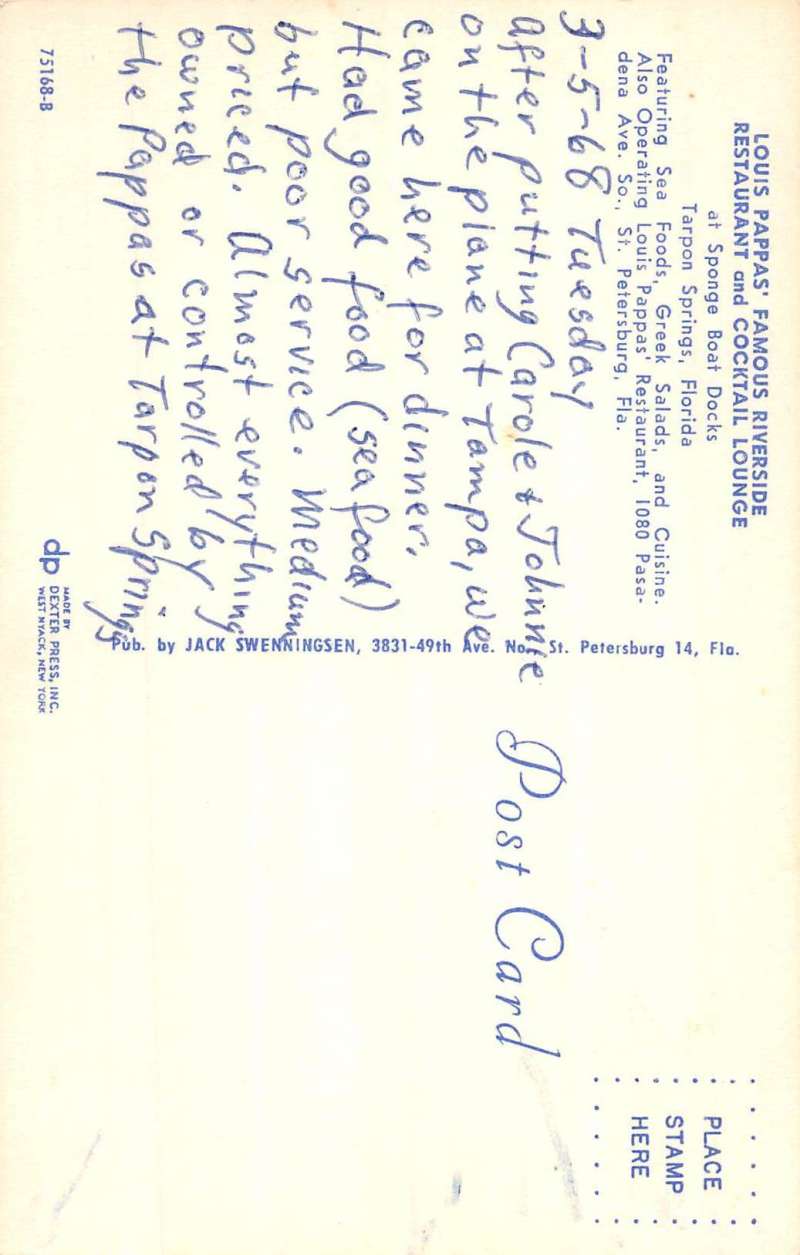 LOUIS PAPPAS' FAMOUS RIVERSIDE
RESTAURANT and COCKTAIL LOUNGE
at Sponge Boat Docks
Tarpon Springs, Florida
Featuring Sea Foods, Greek Salads, and Cuisine.
Also Operating Louis Pappas' Restaurant, 1080 Pasa-
dena Ave. So., St. Petersburg, Fla.
3-5-68 Tuesday
After putting Carole & Johnnie
on the plane at Tampa, we
came here for dinner.
Had good food (sea food)
but poor service. Medium
priced. Almost everything
owned or controlled by
the Pappas at Tarpon Springs
75168-B
dp
MADE BY
DEXTER PRESS, INC.
WEST NYACK, NEW YORK
Pub. by JACK SWENNINGSEN, 3831-49th Ave. No., St. Petersburg 14, Fla.
Post Card
PLACE
STAMP
HERE